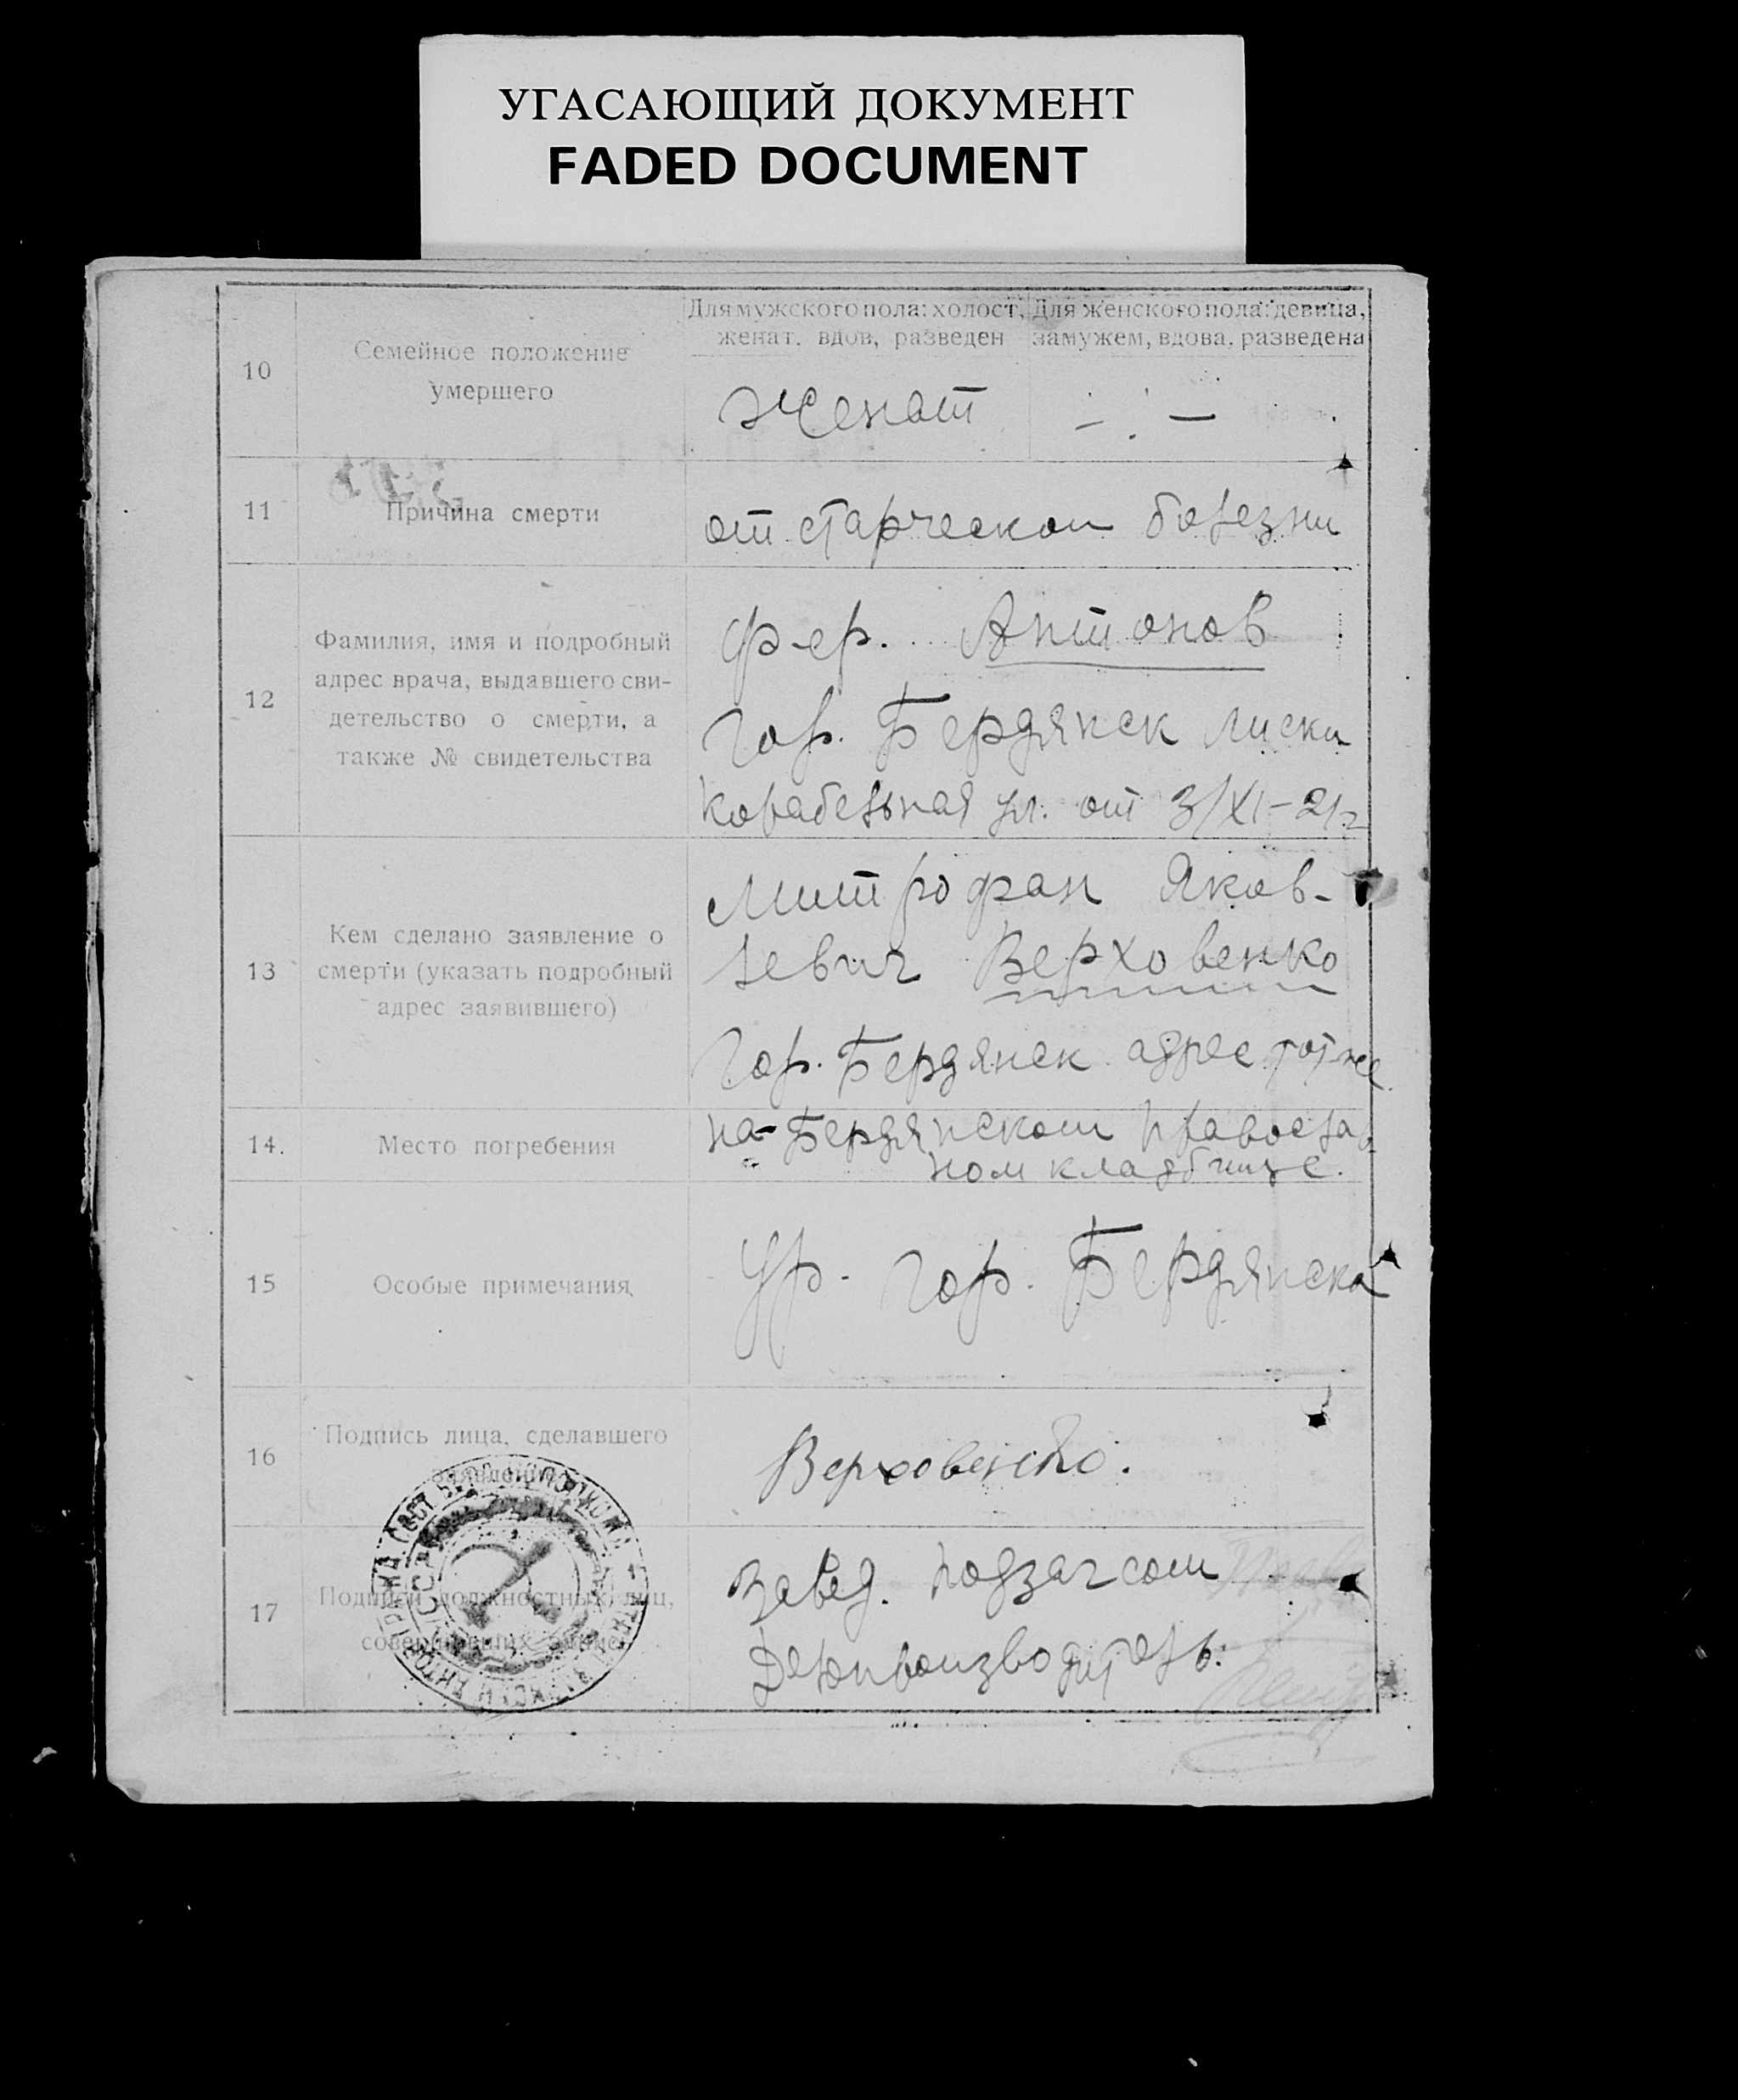 УГАСАЮЩИЙ ДОКУМЕНТ
FADED DOCUMENT
10
Семейное положение
умершего
Для мужского пола: холост,
женат, вдов, разведен
Для женского пола: девица,
замужем, вдова, разведена
Женат
— : —
11
Причина смерти
от старческой болезни
12
Фамилия, имя и подробный
адрес врача, выдавшего сви-
детельство о смерти, а
также № свидетельства
фер. Антонов
гор. Бердянск Лиски
Корабельная ул. от 3/XI-21г
13
Кем сделано заявление о
смерти (указать подробный
адрес заявившего)
Митрофан Яков-
левич Верховенко
гор. Бердянск адрес тотже
14.
Место погребения
на Бердянском православ
ном кладбище.
15
Особые примечания
Ур. гор. Бердянска
16
Подпись лица, сделавшего
заявление
Верховенко.
17
Подписи должностных лиц,
совершивших запись
Завед. подзагсом
Делопроизводитель: